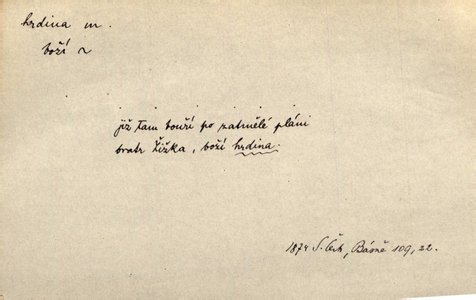 hrdina m.
boží ~
již tam bouří po zatmělé pláni
bratr Žižka, boží hrdina.
1874 S. Čech, Básně 109, 22.